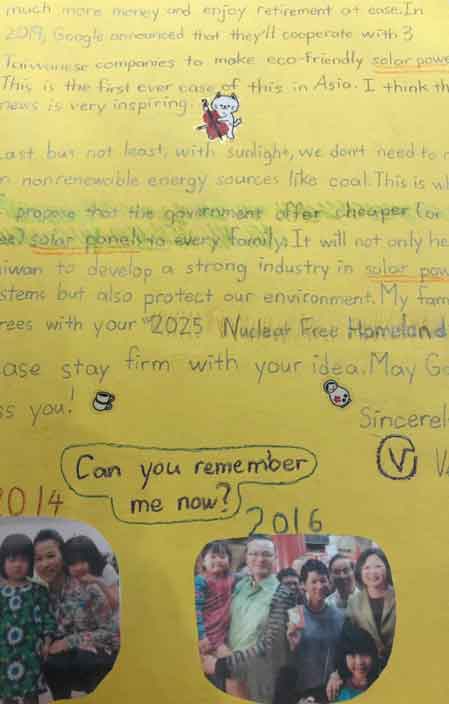 much more money and enjoy retirement at ease. In
2019, Google announced that they'll cooperate with 3
Taiwanese companies to make eco-friendly solar powe
This is the first ever case of this in Asia. I think th
news is very inspiring.
Last but not least, with sunlight, we don't need to r
n nonrenewable energy sources like coal. This is wh
I propose that the government offer cheaper (or
ee) solar panels to every family. It will not only he
aiwan to develop a strong industry in solar pow
stems but also protect our environment. My fam
rees with your "2025 Nuclear Free Homeland
ease stay firm with your idea. May Go
ss you!
Sincerel
V
Can you remember
me now?
2014
2016